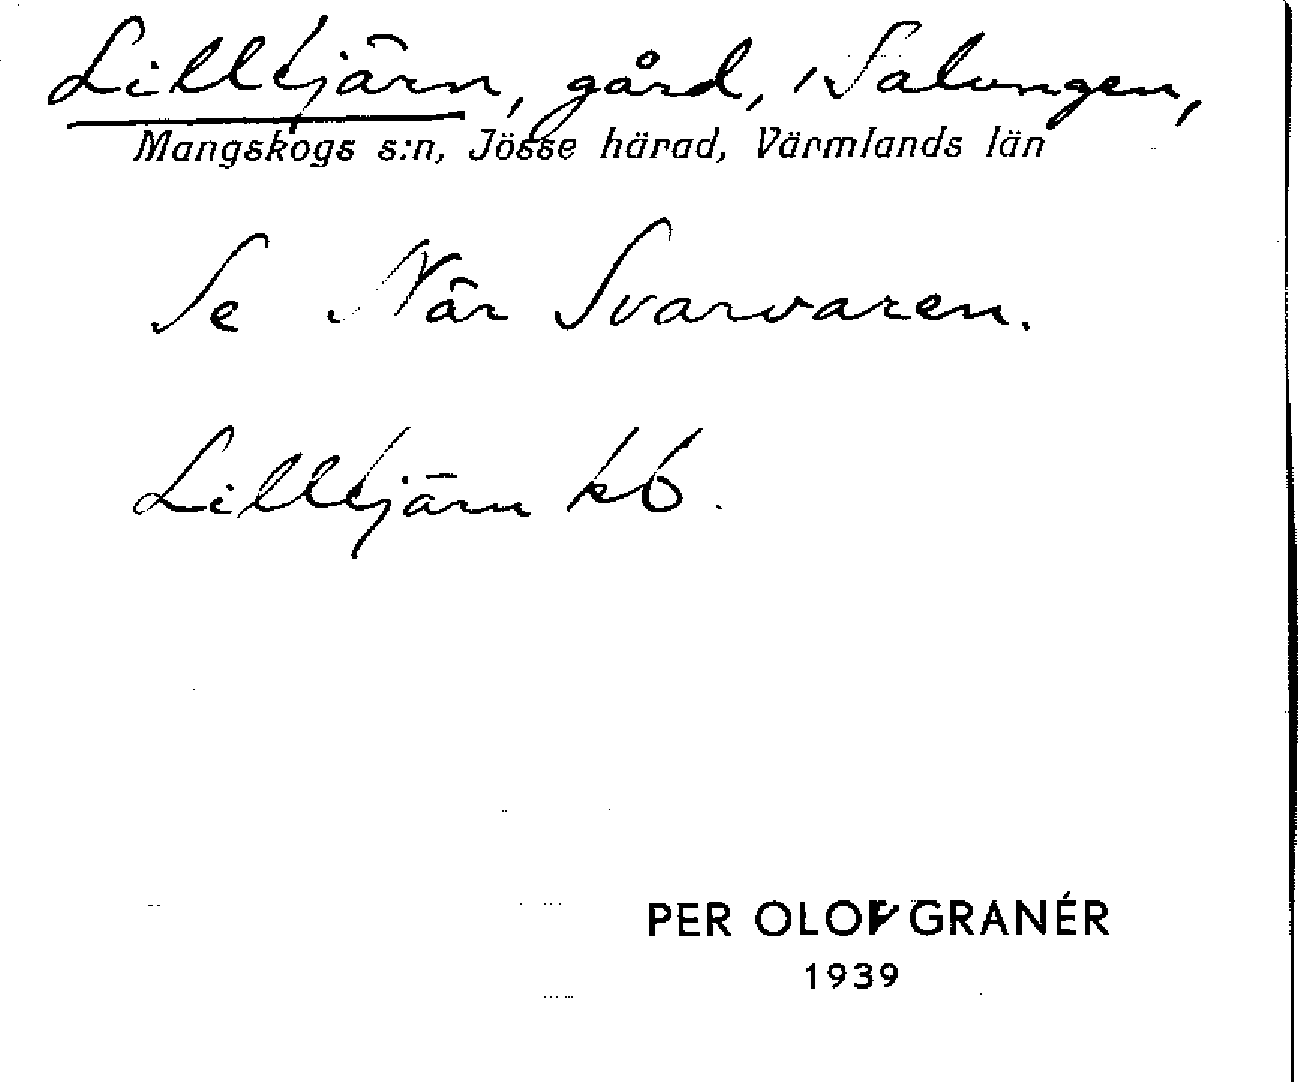 Lilltjärn, gård, i Salungen,
Mangskogs s:n, Jösse härad, Värmlands län
Se När Svarvaren.
Lilltjärn kb.
PER OLOF GRANÉR
1939